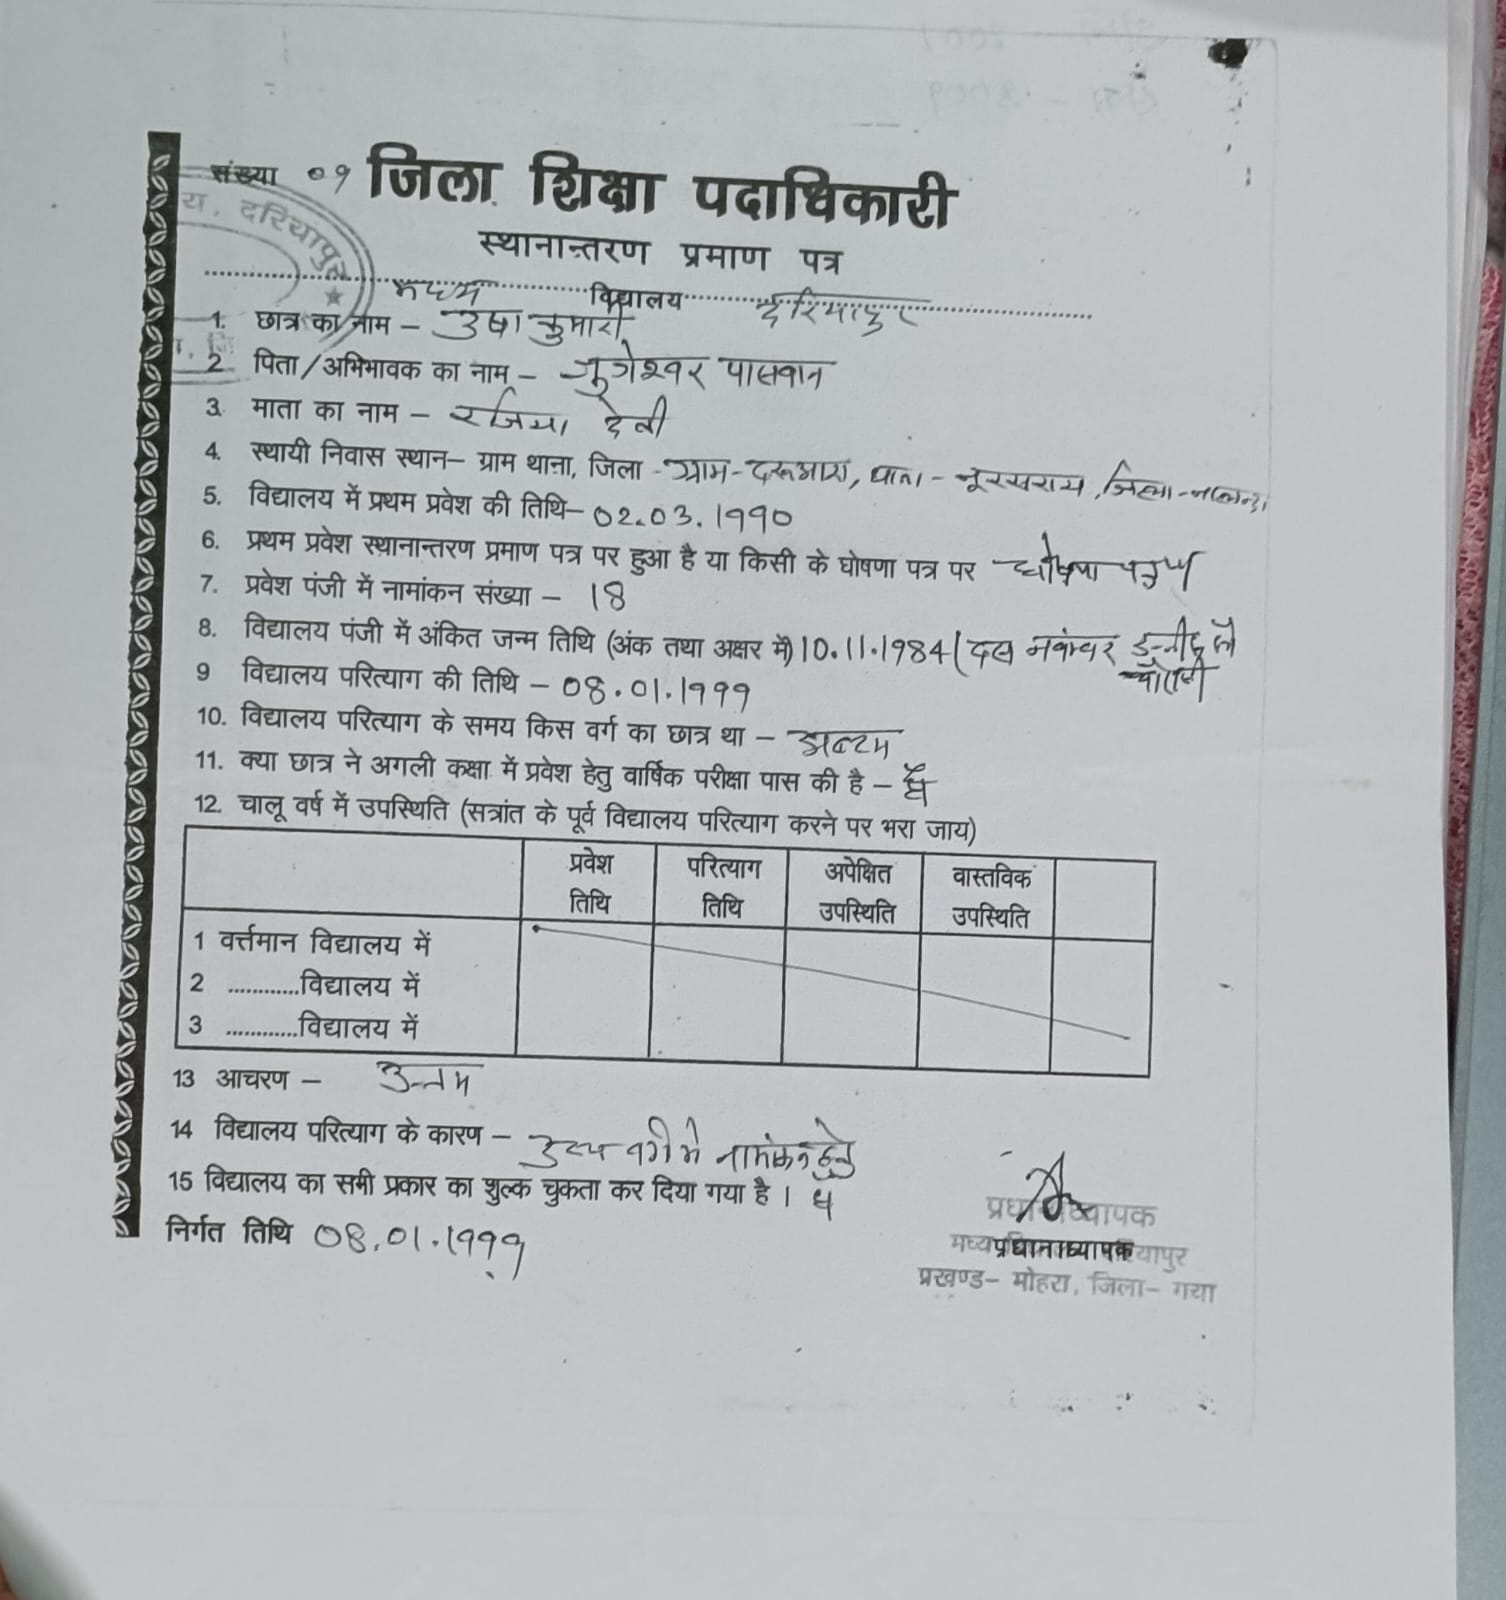 संख्या ०9 जिला शिक्षा पदाधिकारी
य, दरियापुर
स्थानान्तरण प्रमाण पत्र
मध्य विद्यालय दरियापुर
1. छात्र का नाम – उषा कुमारी
2 पिता/अभिभावक का नाम – युगेश्वर पासवान
3. माता का नाम – रजिया देवी
4. स्थायी निवास स्थान– ग्राम थाना, जिला - ग्राम - दरूआरा, थाना - नूरसराय, जिला - नालन्दा
5. विद्यालय में प्रथम प्रवेश की तिथि– 02.03.1990
6. प्रथम प्रवेश स्थानान्तरण प्रमाण पत्र पर हुआ है या किसी के घोषणा पत्र पर घोषणा पत्र
7. प्रवेश पंजी में नामांकन संख्या – 18
8. विद्यालय पंजी में अंकित जन्म तिथि (अंक तथा अक्षर में) 10.11.1984 (दस नवम्बर उन्नीस सौ
चौरासी
9 विद्यालय परित्याग की तिथि – 08.01.1999
10. विद्यालय परित्याग के समय किस वर्ग का छात्र था – अष्टम
11. क्या छात्र ने अगली कक्षा में प्रवेश हेतु वार्षिक परीक्षा पास की है – हाँ
12. चालू वर्ष में उपस्थिति (सत्रांत के पूर्व विद्यालय परित्याग करने पर भरा जाय)
प्रवेश तिथि परित्याग तिथि अपेक्षित उपस्थिति वास्तविक उपस्थिति
1 वर्त्तमान विद्यालय में
2 ............विद्यालय में
3 ............विद्यालय में
13 आचरण – उत्तम
14 विद्यालय परित्याग के कारण – उच्च वर्ग मे नामांकन हेतु
15 विद्यालय का सभी प्रकार का शुल्क चुकता कर दिया गया है।
निर्गत तिथि 08.01.1999
प्रधानाध्यापक
प्रधानाध्यापक
प्रखण्ड- मोहरा, जिला- गया